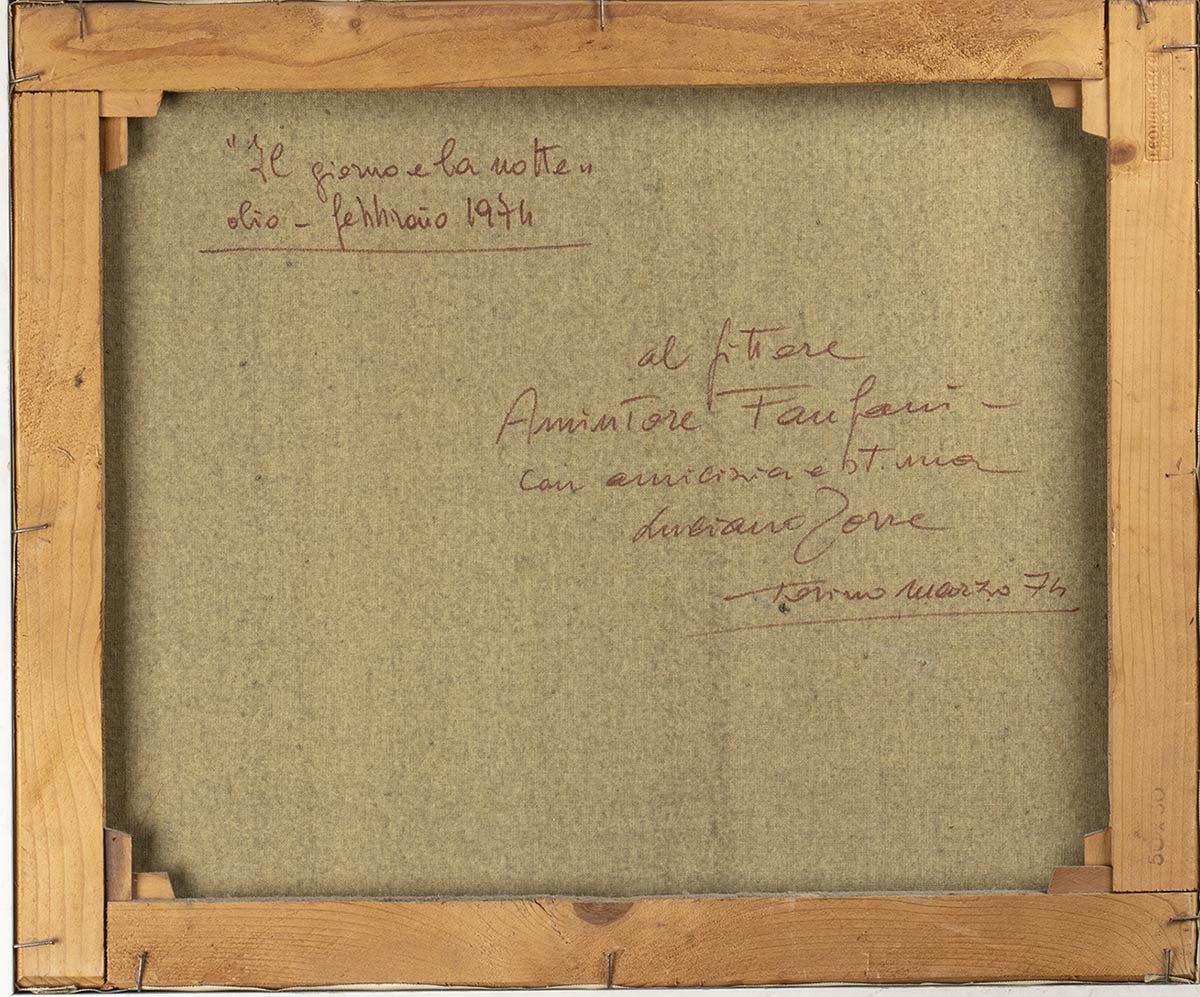 "Il giorno e la notte"
olio - febbraio 1974
al pittore
Amintore Fanfani -
con amicizia e stima
Luciano
Torino marzo 74